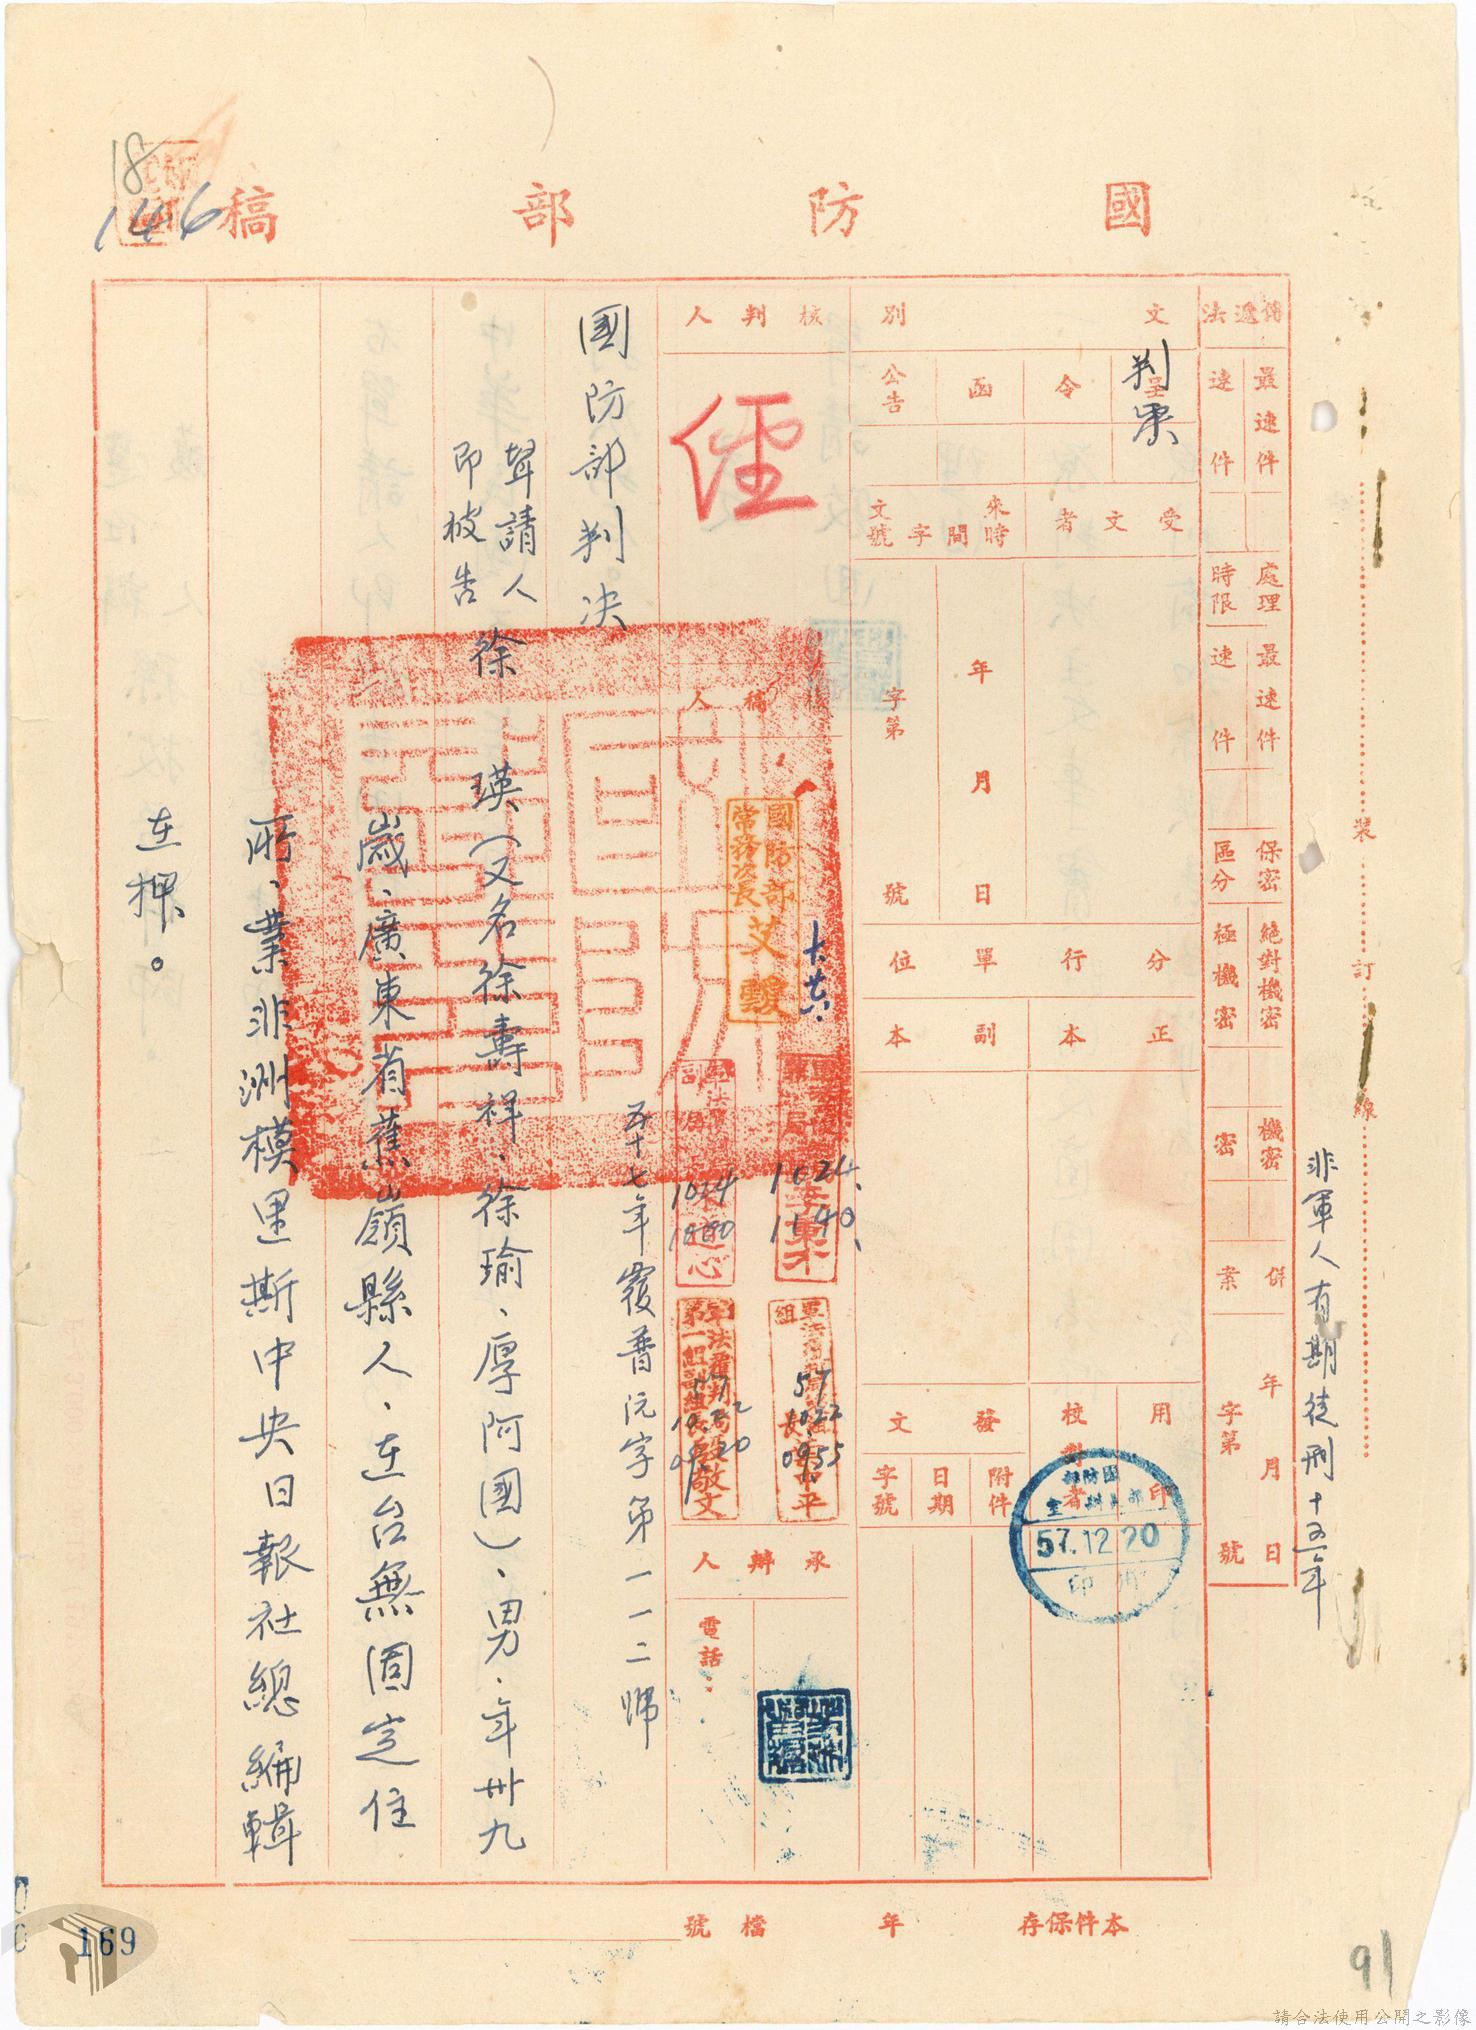 國防部稿
傳遞法
最速件
速件
處理時限
最速件
速件
保密區分
絕對機密
極機密
機密
密
併案
年月日
字第號
文別
呈
令
函
公告
判案
受文者
來文時間字號
年月日
字第號
分行單位
正本
副本
用印
校對者
發文
附件
日期
字號
核判人
核稿人
承辦人
電話：
國防部
常務次長
艾靉
1024
1140
57
1022
0955
57.12.20
國防部判決
五十七年覆普沅字第一一二號
聲請人
即被告
徐瑛（又名徐壽祥、徐瑜、厚阿國）、男、年卅九
歲、廣東省蕉嶺縣人、在台無固定住
所、業非洲模里斯中央日報社總編輯
在押。
非軍人有期徒刑十五年
裝訂線
本件保存 年
檔號
18
146
169
91
請合法使用公開之影像